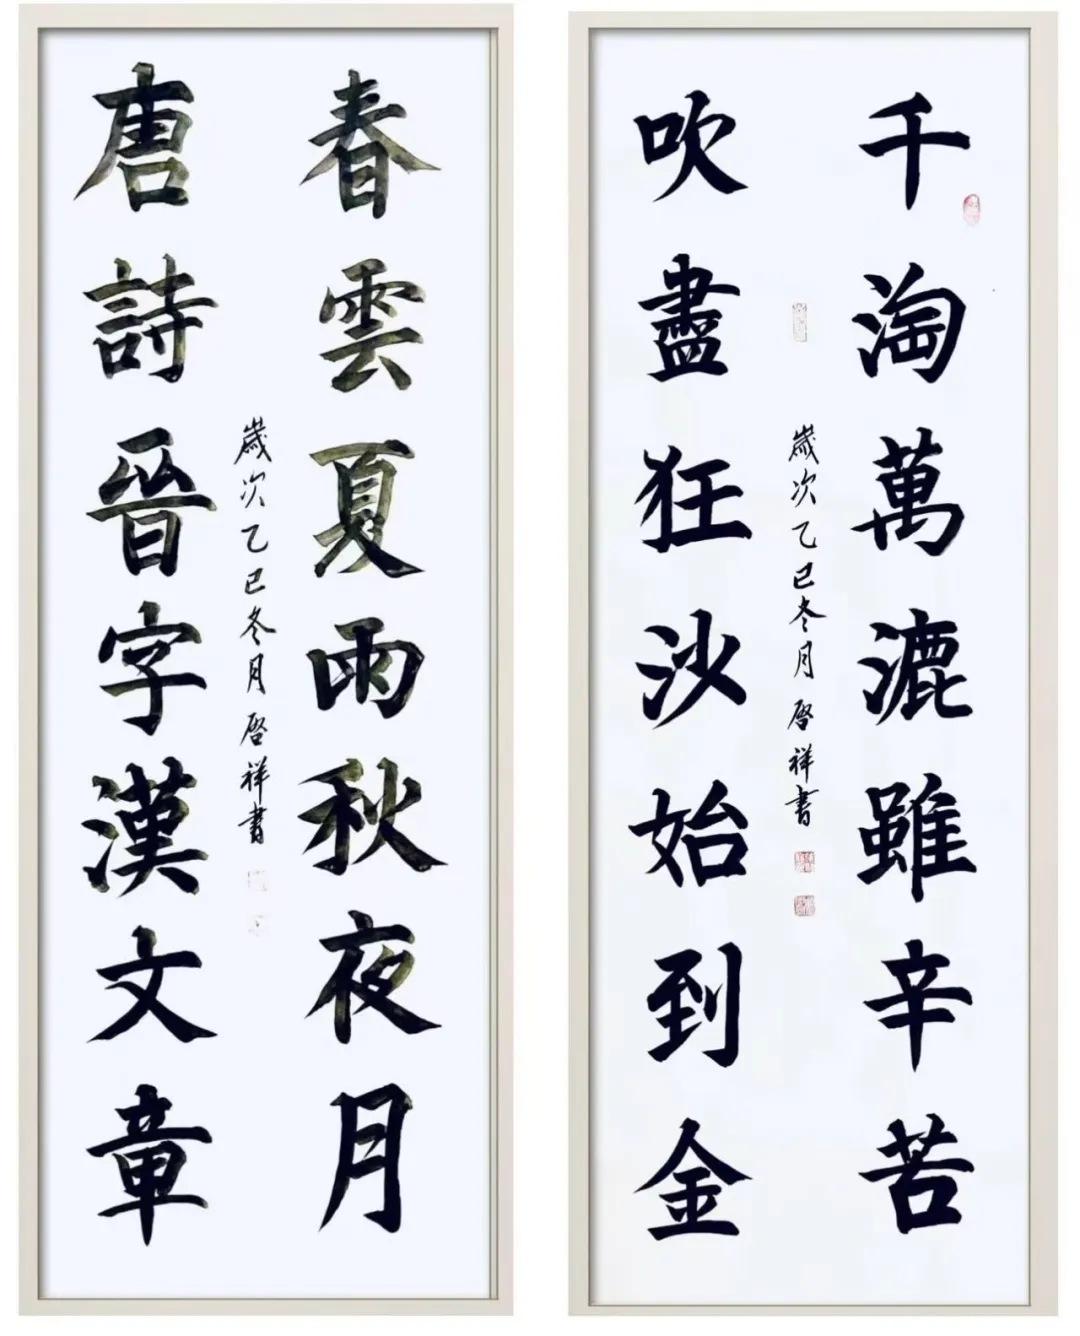 千淘萬漉雖辛苦
吹盡狂沙始到金
歲次乙巳冬月啓祥書
春雲夏雨秋夜月
唐詩晉字漢文章
歲次乙巳冬月啓祥書